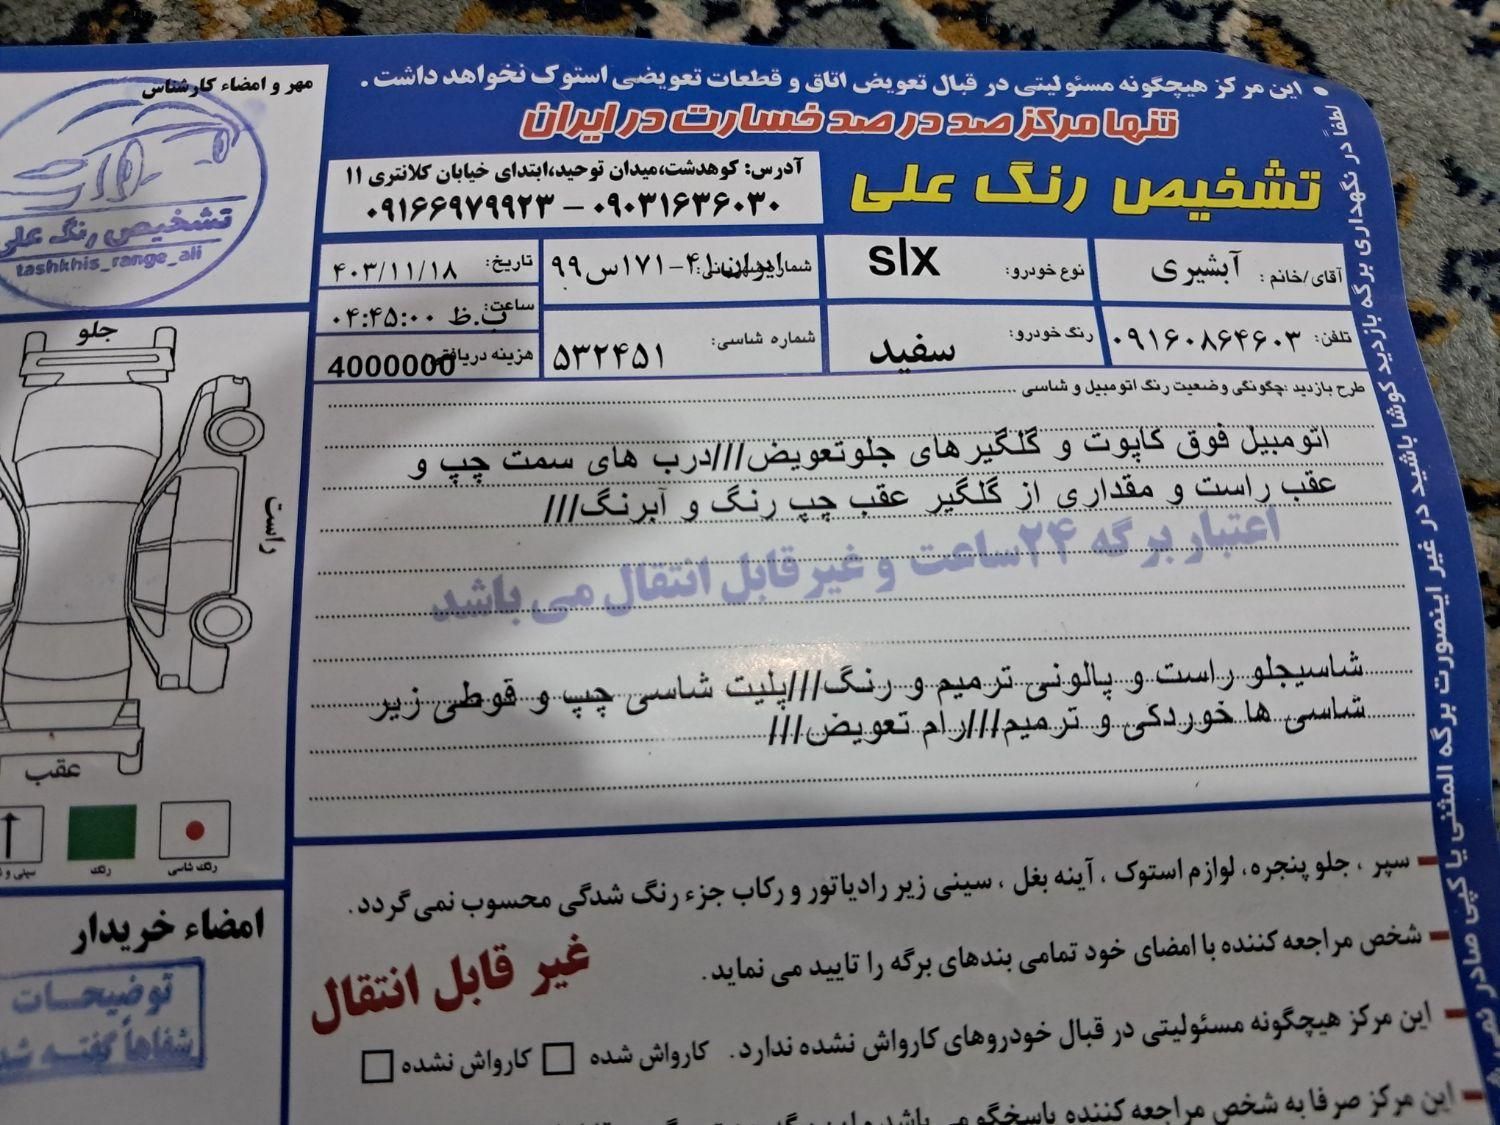 این مرکز هیچگونه مسئولیتی در قبال تعویض اتاق و قطعات تعویضی استوک نخواهد داشت.
تنها مرکز صد در صد خسارت در ایران
تشخیص رنگ علی
آدرس: کوهدشت،میدان توحید،ابتدای خیابان کلانتری ۱۱
۰۹۱۶۶۹۷۹۹۲۳ – ۰۹۰۳۱۶۳۶۰۳۰
مهر و امضاء کارشناس
تشخیص رنگ علی
tashkhis_range_ali
آقای/خانم: آبشیری
نوع خودرو: slx
ایران۴۱-۱۷۱س۹۹
تاریخ: ۴۰۳/۱۱/۱۸
ساعت: ۰۴:۴۵:۰۰ ب.ظ
تلفن: ۰۹۱۶۰۸۶۴۶۰۳
رنگ خودرو: سفید
شماره شاسی: ۵۳۲۴۵۱
هزینه دریافتی: 4000000
طرح بازدید :چگونگی وضعیت رنگ اتومبیل و شاسی
اتومبیل فوق کاپوت و گلگیرهای جلوتعویض///درب های سمت چپ و
عقب راست و مقداری از گلگیر عقب چپ رنگ و آبرنگ///
اعتبار برگه ۲۴ساعت و غیرقابل انتقال می باشد
شاسیجلو راست و پالونی ترمیم و رنگ///پلیت شاسی چپ و قوطی زیر
شاسی ها خوردکی و ترمیم///رام تعویض///
جلو
راست
عقب
رنگ شاسی
رنگ
سینی و
سپر ، جلو پنجره، لوازم استوک ، آینه بغل ، سینی زیر رادیاتور و رکاب جزء رنگ شدگی محسوب نمی گردد.
شخص مراجعه کننده با امضای خود تمامی بندهای برگه را تایید می نماید.
غیر قابل انتقال
این مرکز هیچگونه مسئولیتی در قبال خودروهای کارواش نشده ندارد.
کارواش شده
کارواش نشده
این مرکز صرفا به شخص مراجعه کننده پاسخگو می باشد
امضاء خریدار
توضیحات
شفاهاً گفته شد
لطفاً در نگهداری برگه بازدید کوشا باشید در غیر اینصورت برگه المثنی یا کپی صادر نمی